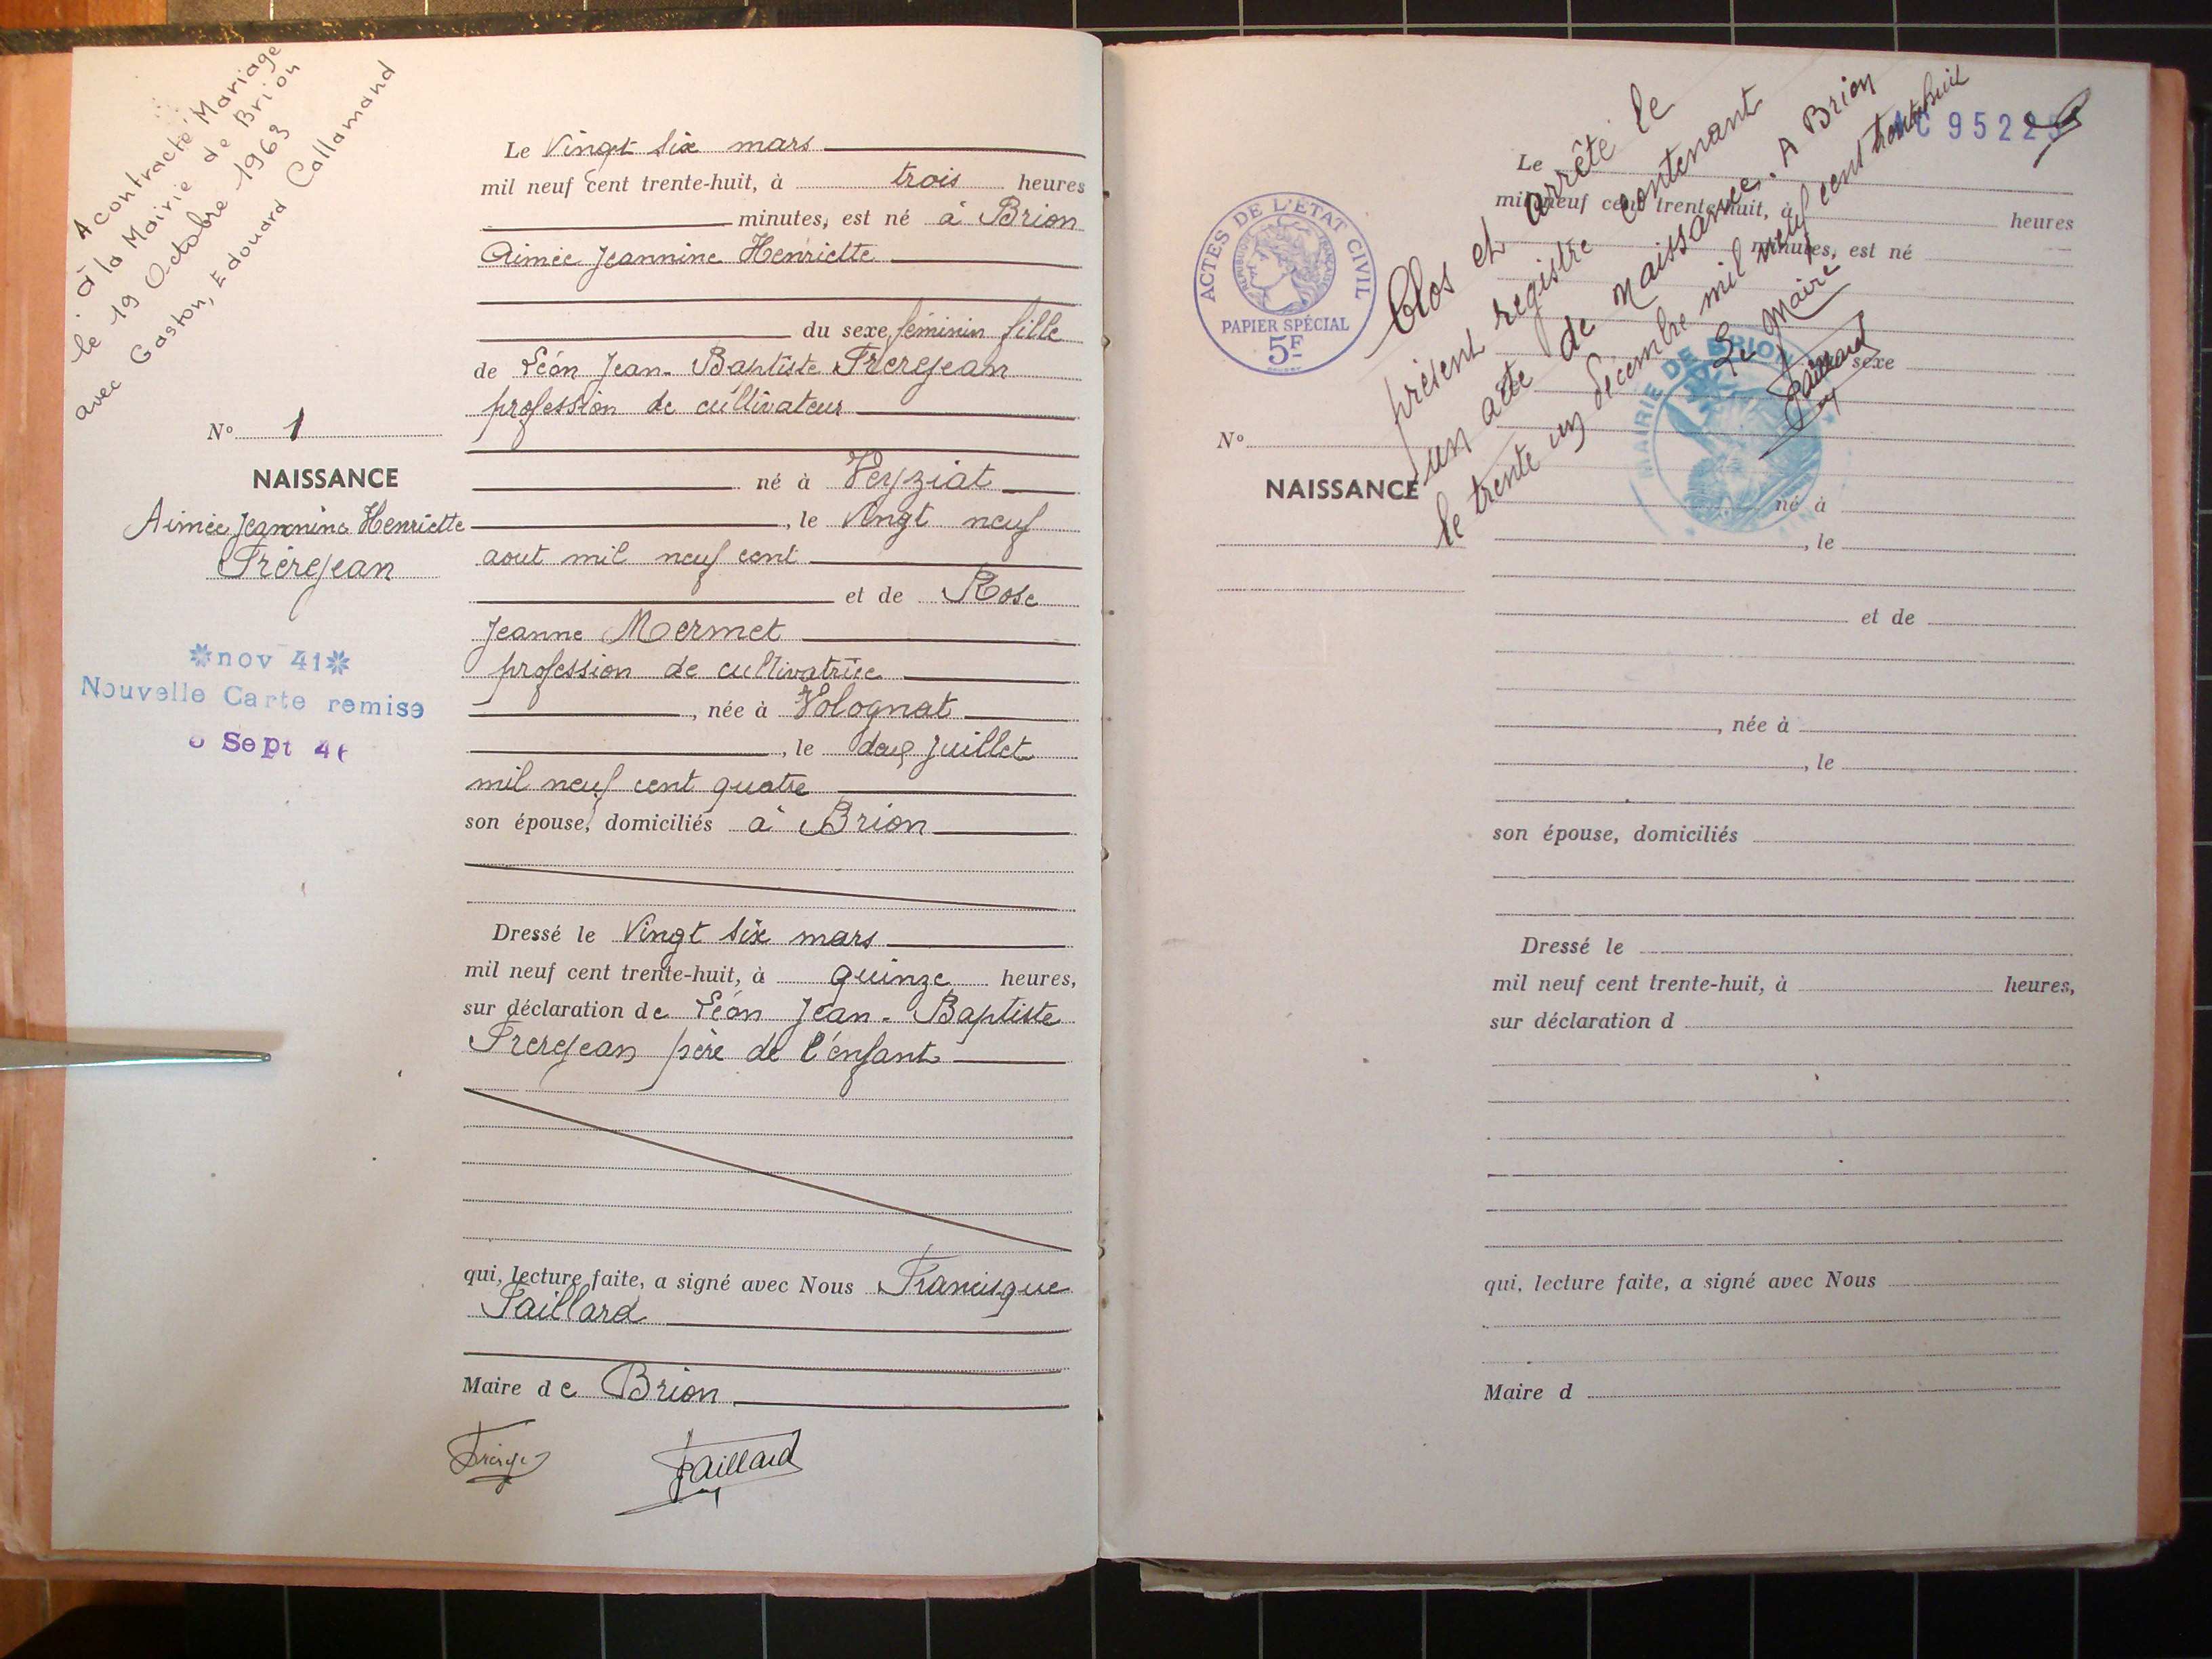 A contracté Mariage
à la Mairie de Brion
le 19 Octobre 1963
avec Gaston, Edouard Callamand
N° 1
NAISSANCE
Aimée Jeannine Henriette
Frèrejean
nov 41
Nouvelle Carte remise
Sept 46
Le Vingt six mars
mil neuf cent trente-huit, à trois heures
minutes, est né à Brion
Aimée Jeannine Henriette
du sexe féminin fille
de Léon Jean-Baptiste Frerejean
profession de cultivateur
né à Veyziat
, le vingt neuf
aout mil neuf cent
et de Rose
Jeanne Mermet
profession de cultivatrice
, née à Volognat
, le deux juillet
mil neuf cent quatre
son épouse, domiciliés à Brion
Dressé le Vingt six mars
mil neuf cent trente-huit, à quinze heures,
sur déclaration de Léon Jean-Baptiste
Frerejean père de l'enfant
qui, lecture faite, a signé avec Nous Francisque
Paillard
Maire de Brion
Paillard
ACTES DE L'ÉTAT CIVIL
RÉPUBLIQUE FRANÇAISE
PAPIER SPÉCIAL
5F
C 9522
Clos et arrêté le
présent registre contenant
un acte de naissance. A Brion
le trente un décembre mil neuf cent trente huit
Le Maire
Paillard
MAIRIE DE BRION
Le
mil neuf cent trente-huit, à heures
minutes, est né
sexe
N°
NAISSANCE
né à
, le
et de
, née à
, le
son épouse, domiciliés
Dressé le
mil neuf cent trente-huit, à heures,
sur déclaration d
qui, lecture faite, a signé avec Nous
Maire d